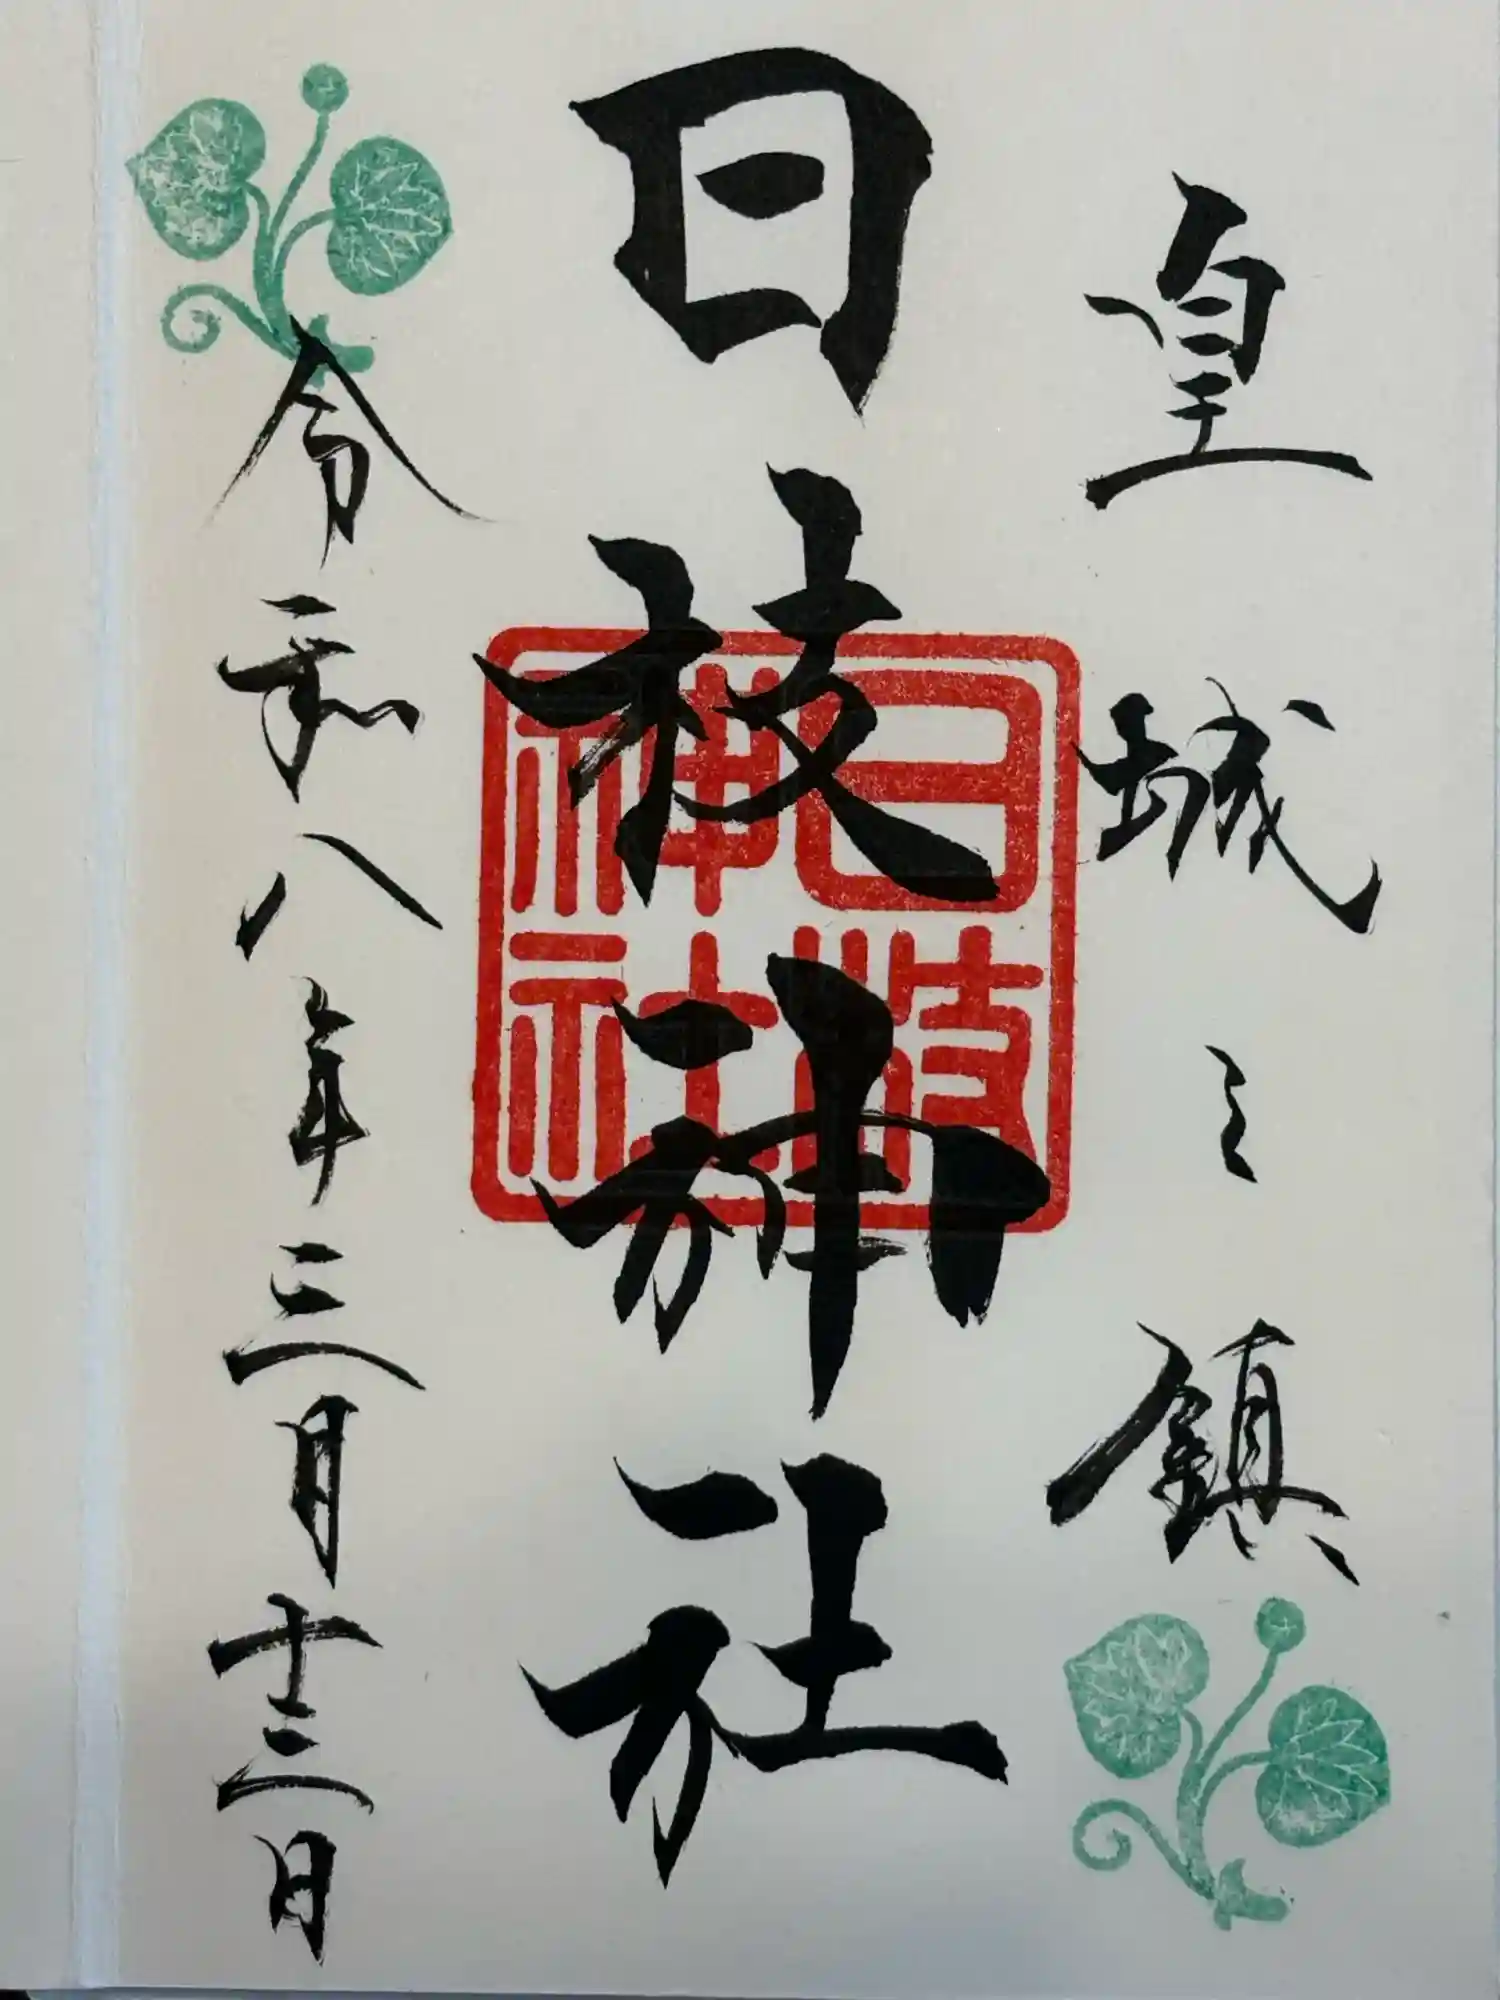 皇城之鎮
日枝神社
日枝
神社
令和八年三月十三日